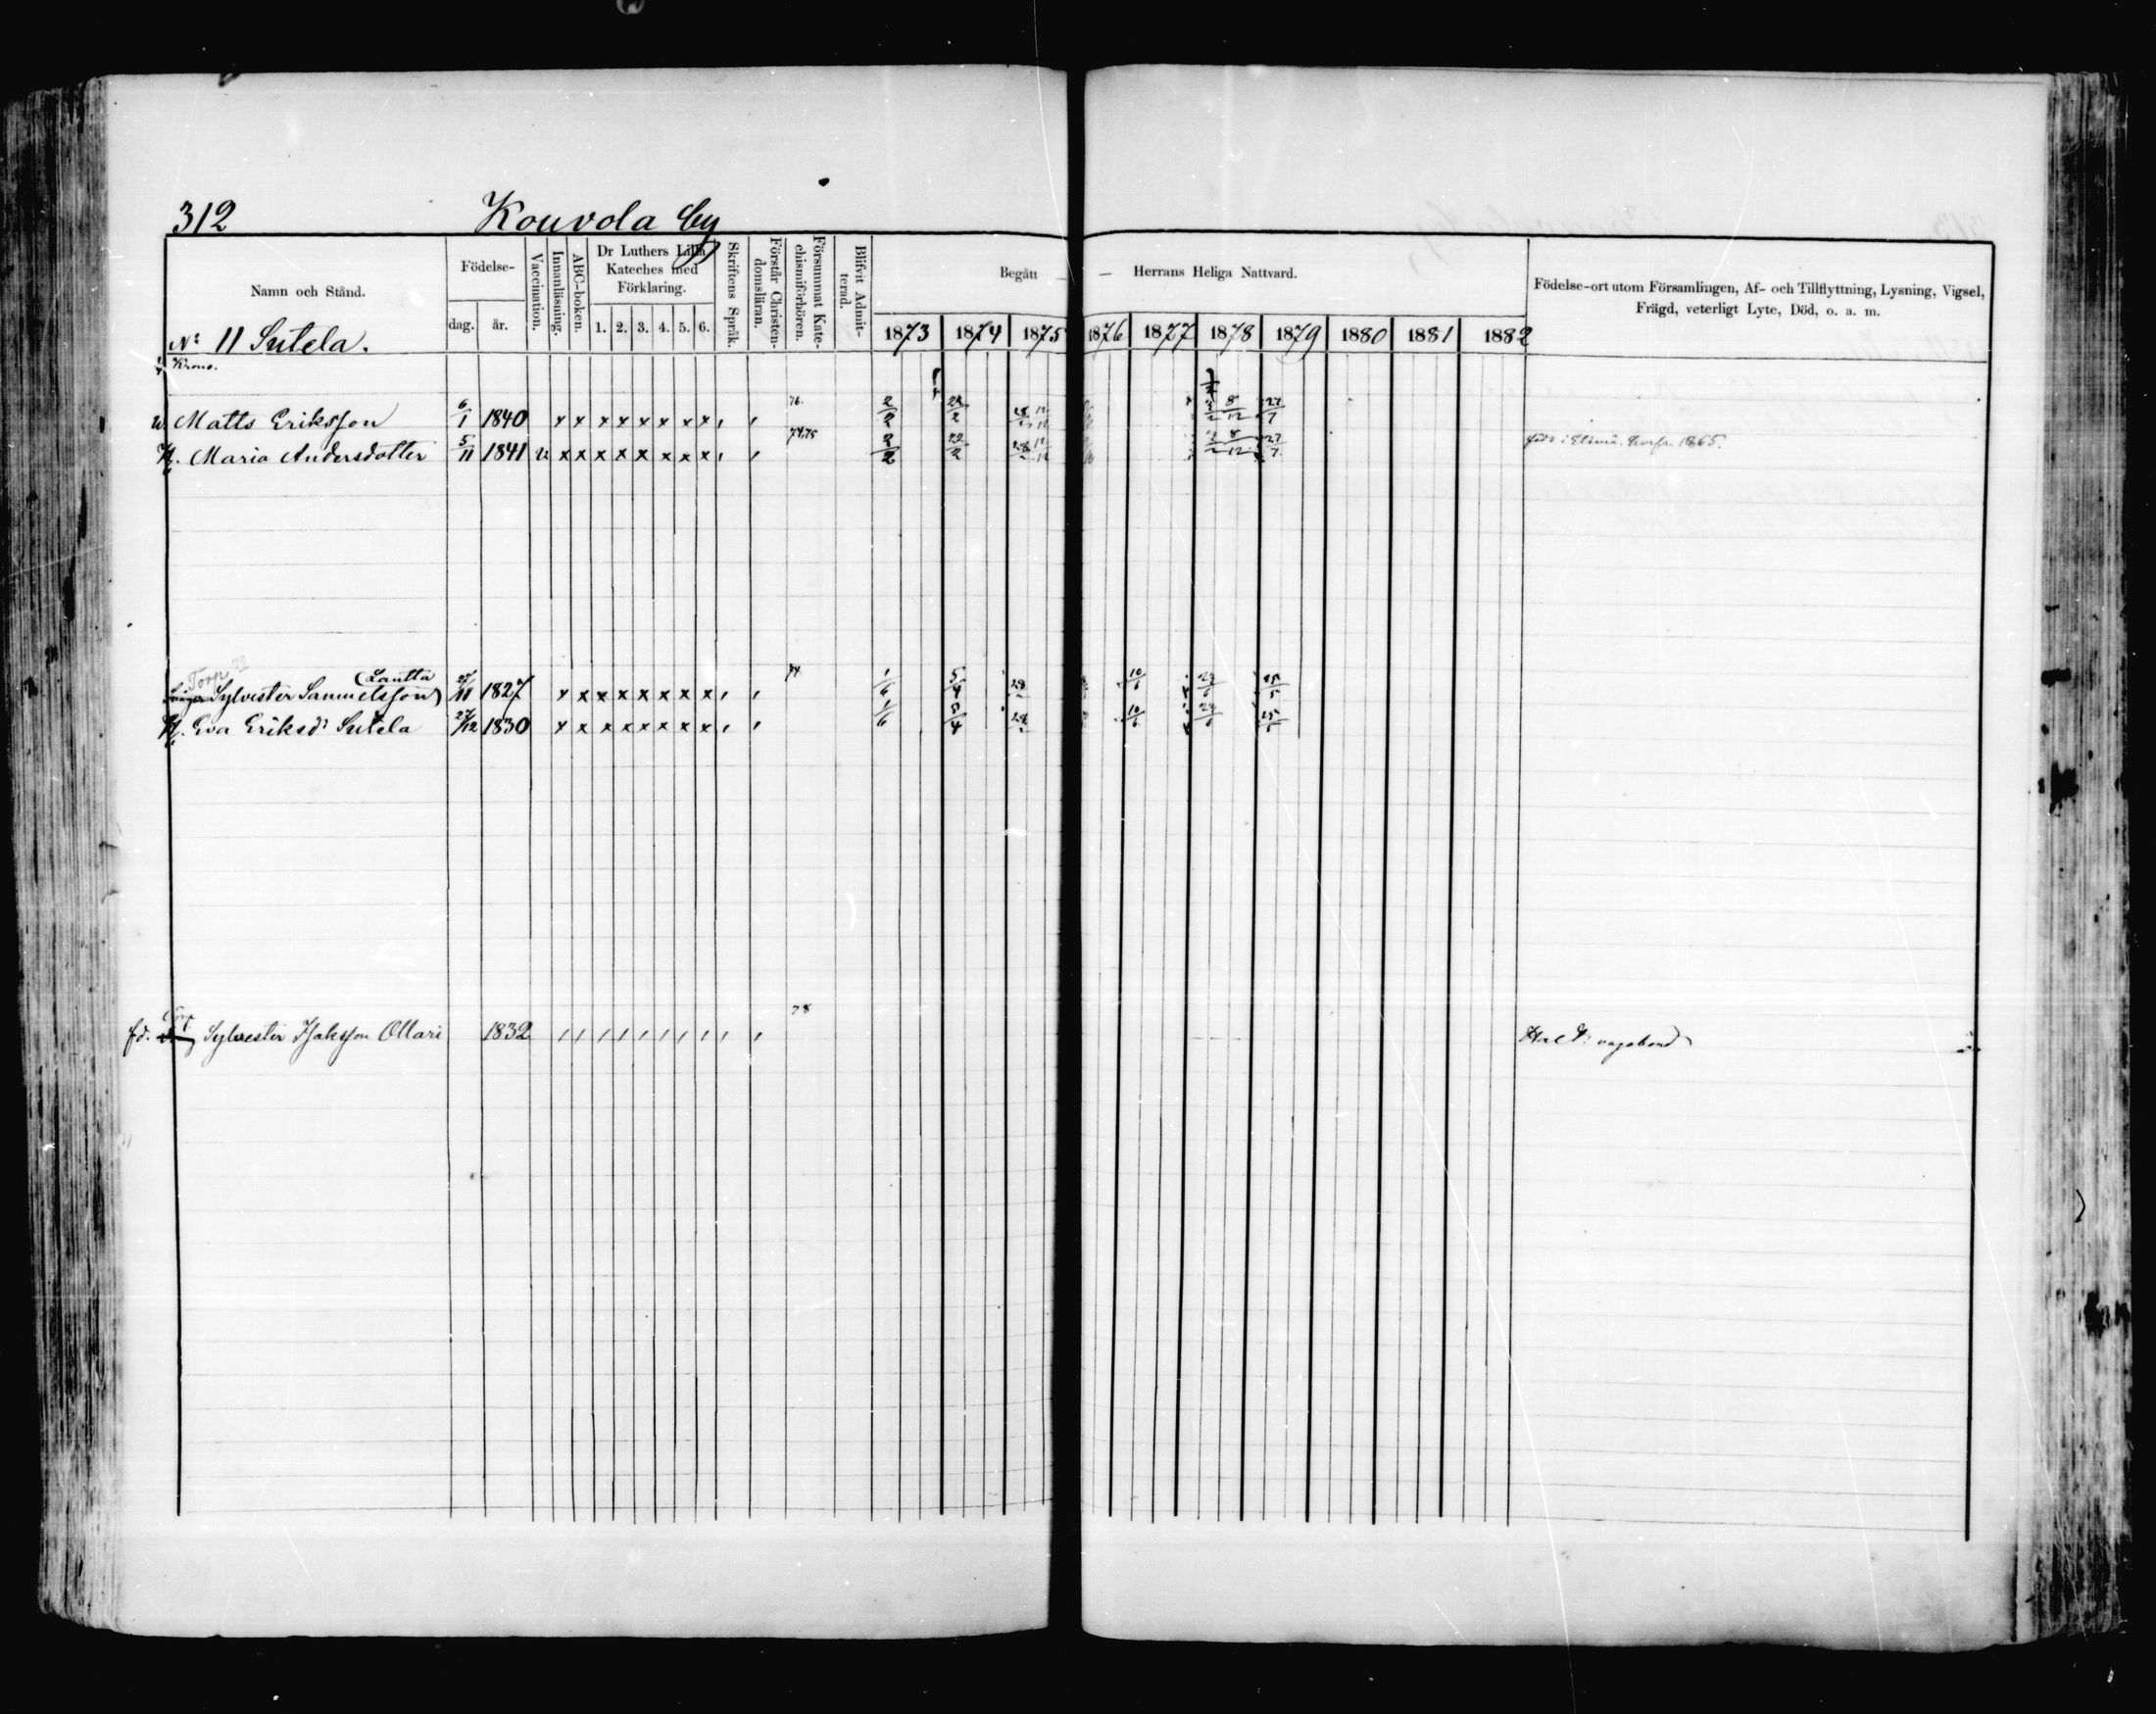 312 Kouvola by
Namn och Stånd.
Födelse-
dag. år.
Vaccination.
Innanläsning.
ABC-boken.
Dr Luthers Lilla
Kateches med
Förklaring.
1. 2. 3. 4. 5. 6.
Skriftens Språk.
Förstår Christen-
domsläran.
Försummat Kate-
chismiförhören.
Blifvit Admit-
terad.
Begått — — Herrans Heliga Nattvard.
1873 1874 1875 1876 1877 1878 1879 1880 1881 1882
Födelse-ort utom Församlingen, Af- och Tillflyttning, Lysning, Vigsel,
Frägd, veterligt Lyte, Död, o. a. m.
No 11 Sutela.
Krono.
Matts Eriksson 6/1 1840 x x x x x x x x , , 76. 2/2 22/2 8/12 27/7
H. Maria Andersdotter 5/11 1841 v x x x x x x x x , , 74.75 2/2 22/2 8/12 27/7 född i Elimä. 1865.
Torp
(Lautta
Sylvester Samuelsson) 27/11 1827 x x x x x x x x , , 74 1/6 5/4 10/6 25/5
H. Eva Eriksdr Sutela 27/12 1830 x x x x x x x x , , 1/6 5/4 10/6 25/5
fd. Torp. Sylvester Isaksson Ollari 1832 , , , , , , , , , , 78 vagabond